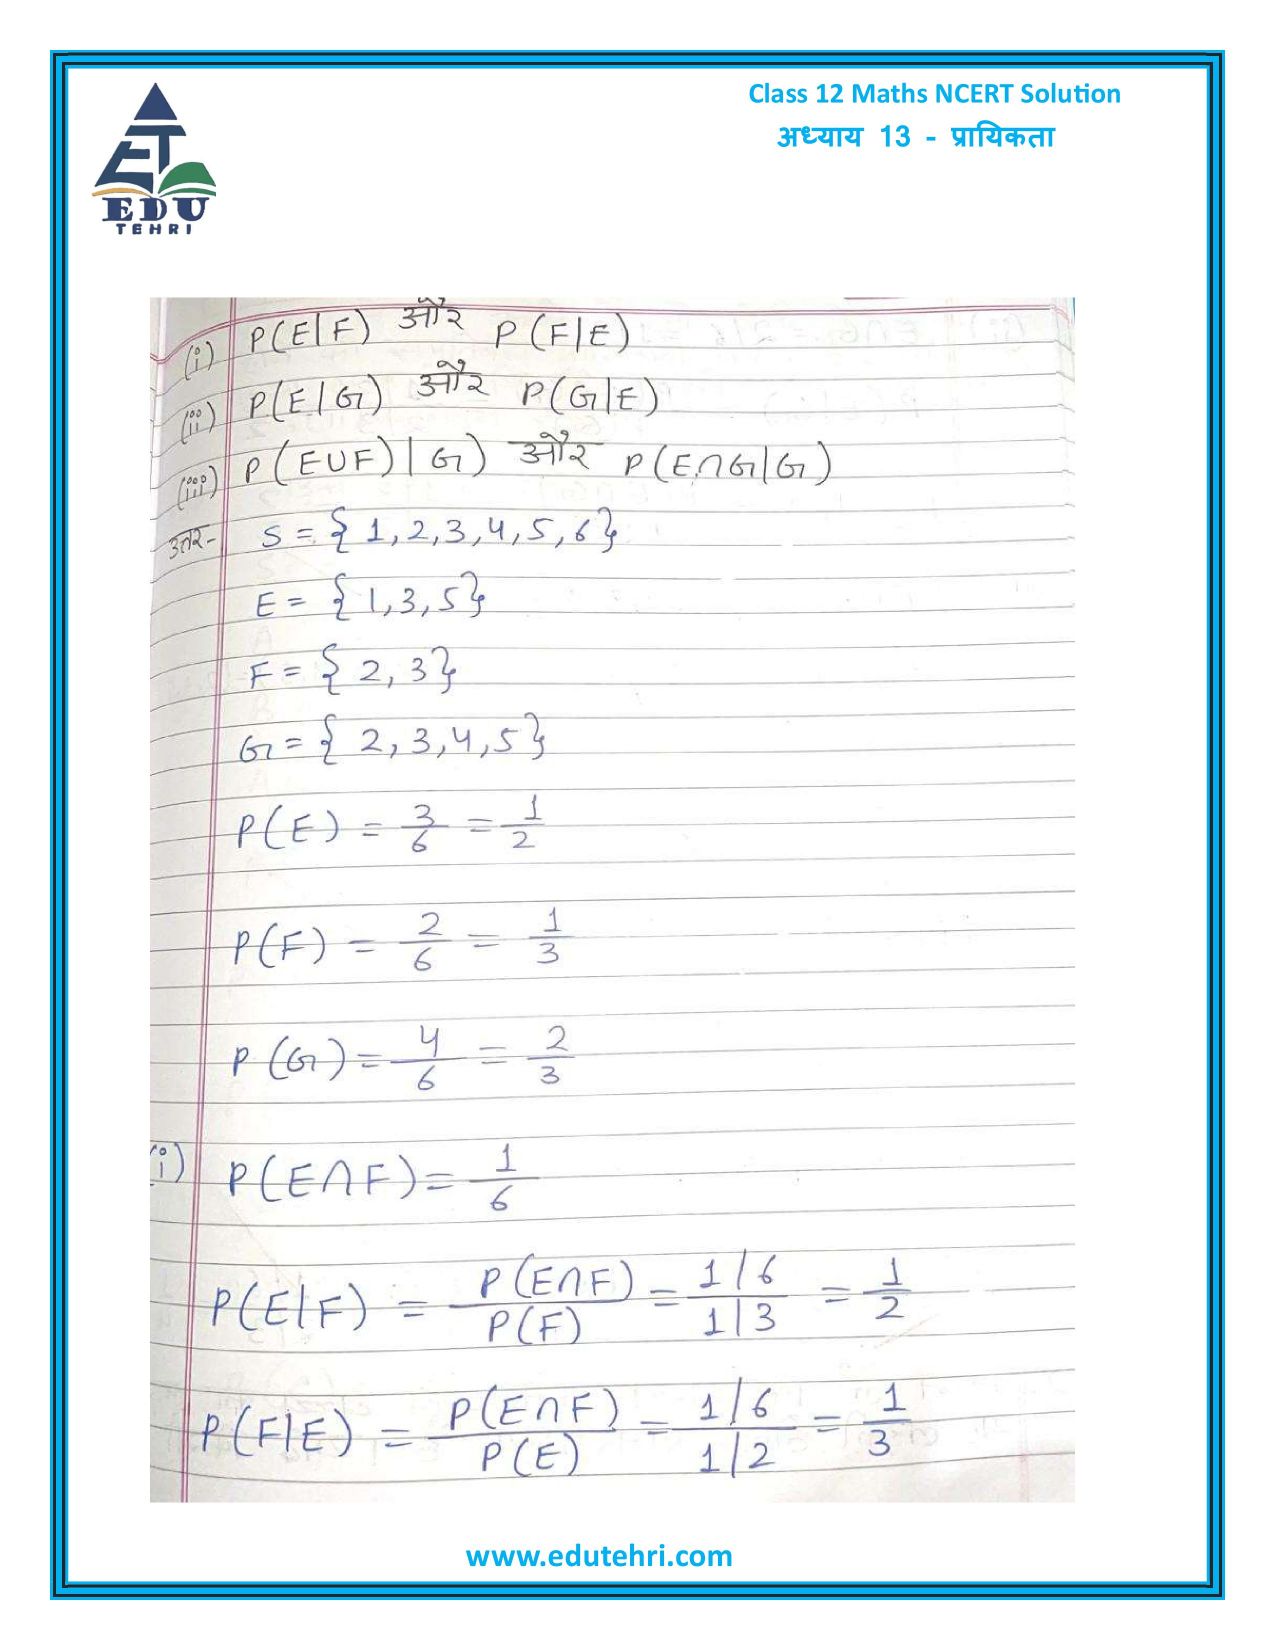 Class 12 Maths NCERT Solution
अध्याय 13 - प्रायिकता
EDU
TEHRI
(i) P(E|F) और P(F|E)
(ii) P(E|G) और P(G|E)
(iii) P(EUF)|G) और P(E∩G|G)
उत्तर- S = {1,2,3,4,5,6}
E = {1,3,5}
F = {2,3}
G = {2,3,4,5}
P(E) = 3/6 = 1/2
P(F) = 2/6 = 1/3
P(G) = 4/6 = 2/3
(i) P(E∩F) = 1/6
P(E|F) = P(E∩F)/P(F) = 1/6/1/3 = 1/2
P(F|E) = P(E∩F)/P(E) = 1/6/1/2 = 1/3
www.edutehri.com